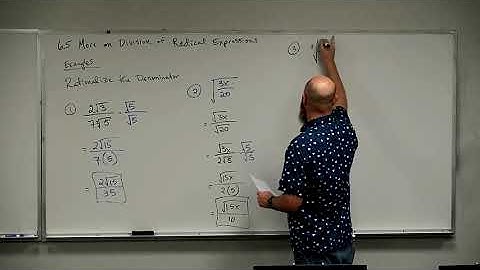 6.5 More on Division of Radical Expressions
Examples
Rationalize the Denominator
① 2√3 / 7√5 · √5 / √5
= 2√15 / 7(5)
= 2√15 / 35
② √(3x / 20)
= √3x / √20
= √3x / 2√5 · √5 / √5
= √15x / 2(5)
= √15x / 10
③